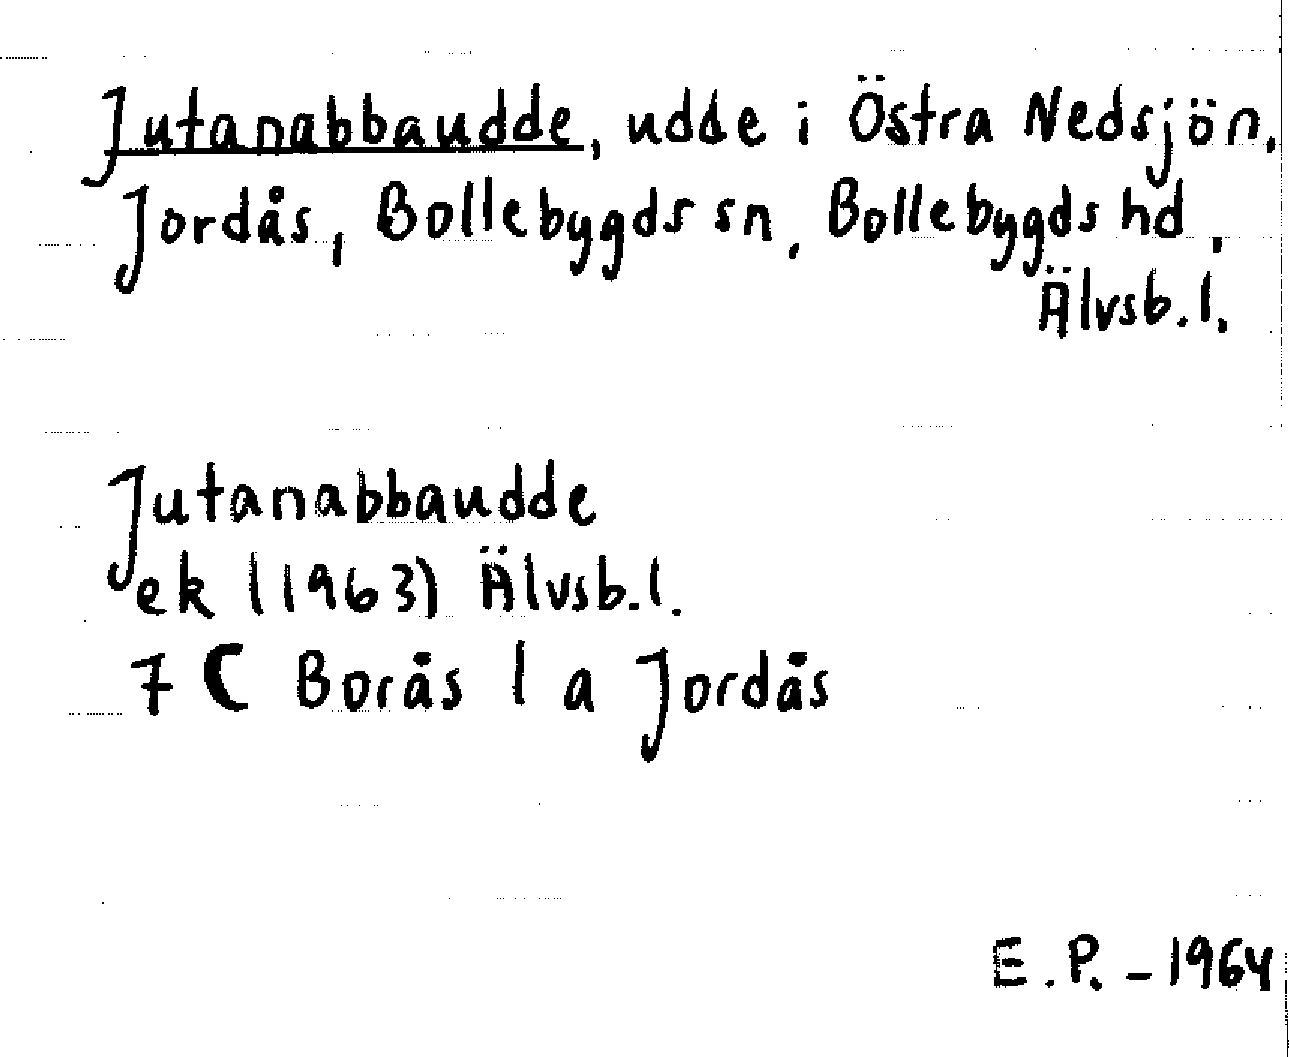 Jutanabbaudde, udde i Östra Nedsjön.
Jordås, Bollebygds sn, Bollebygds hd,
Älvsb.l.
Jutanabbaudde
ek (1963) Älvsb.l.
7 C Borås 1 a Jordås
E.P. - 1964